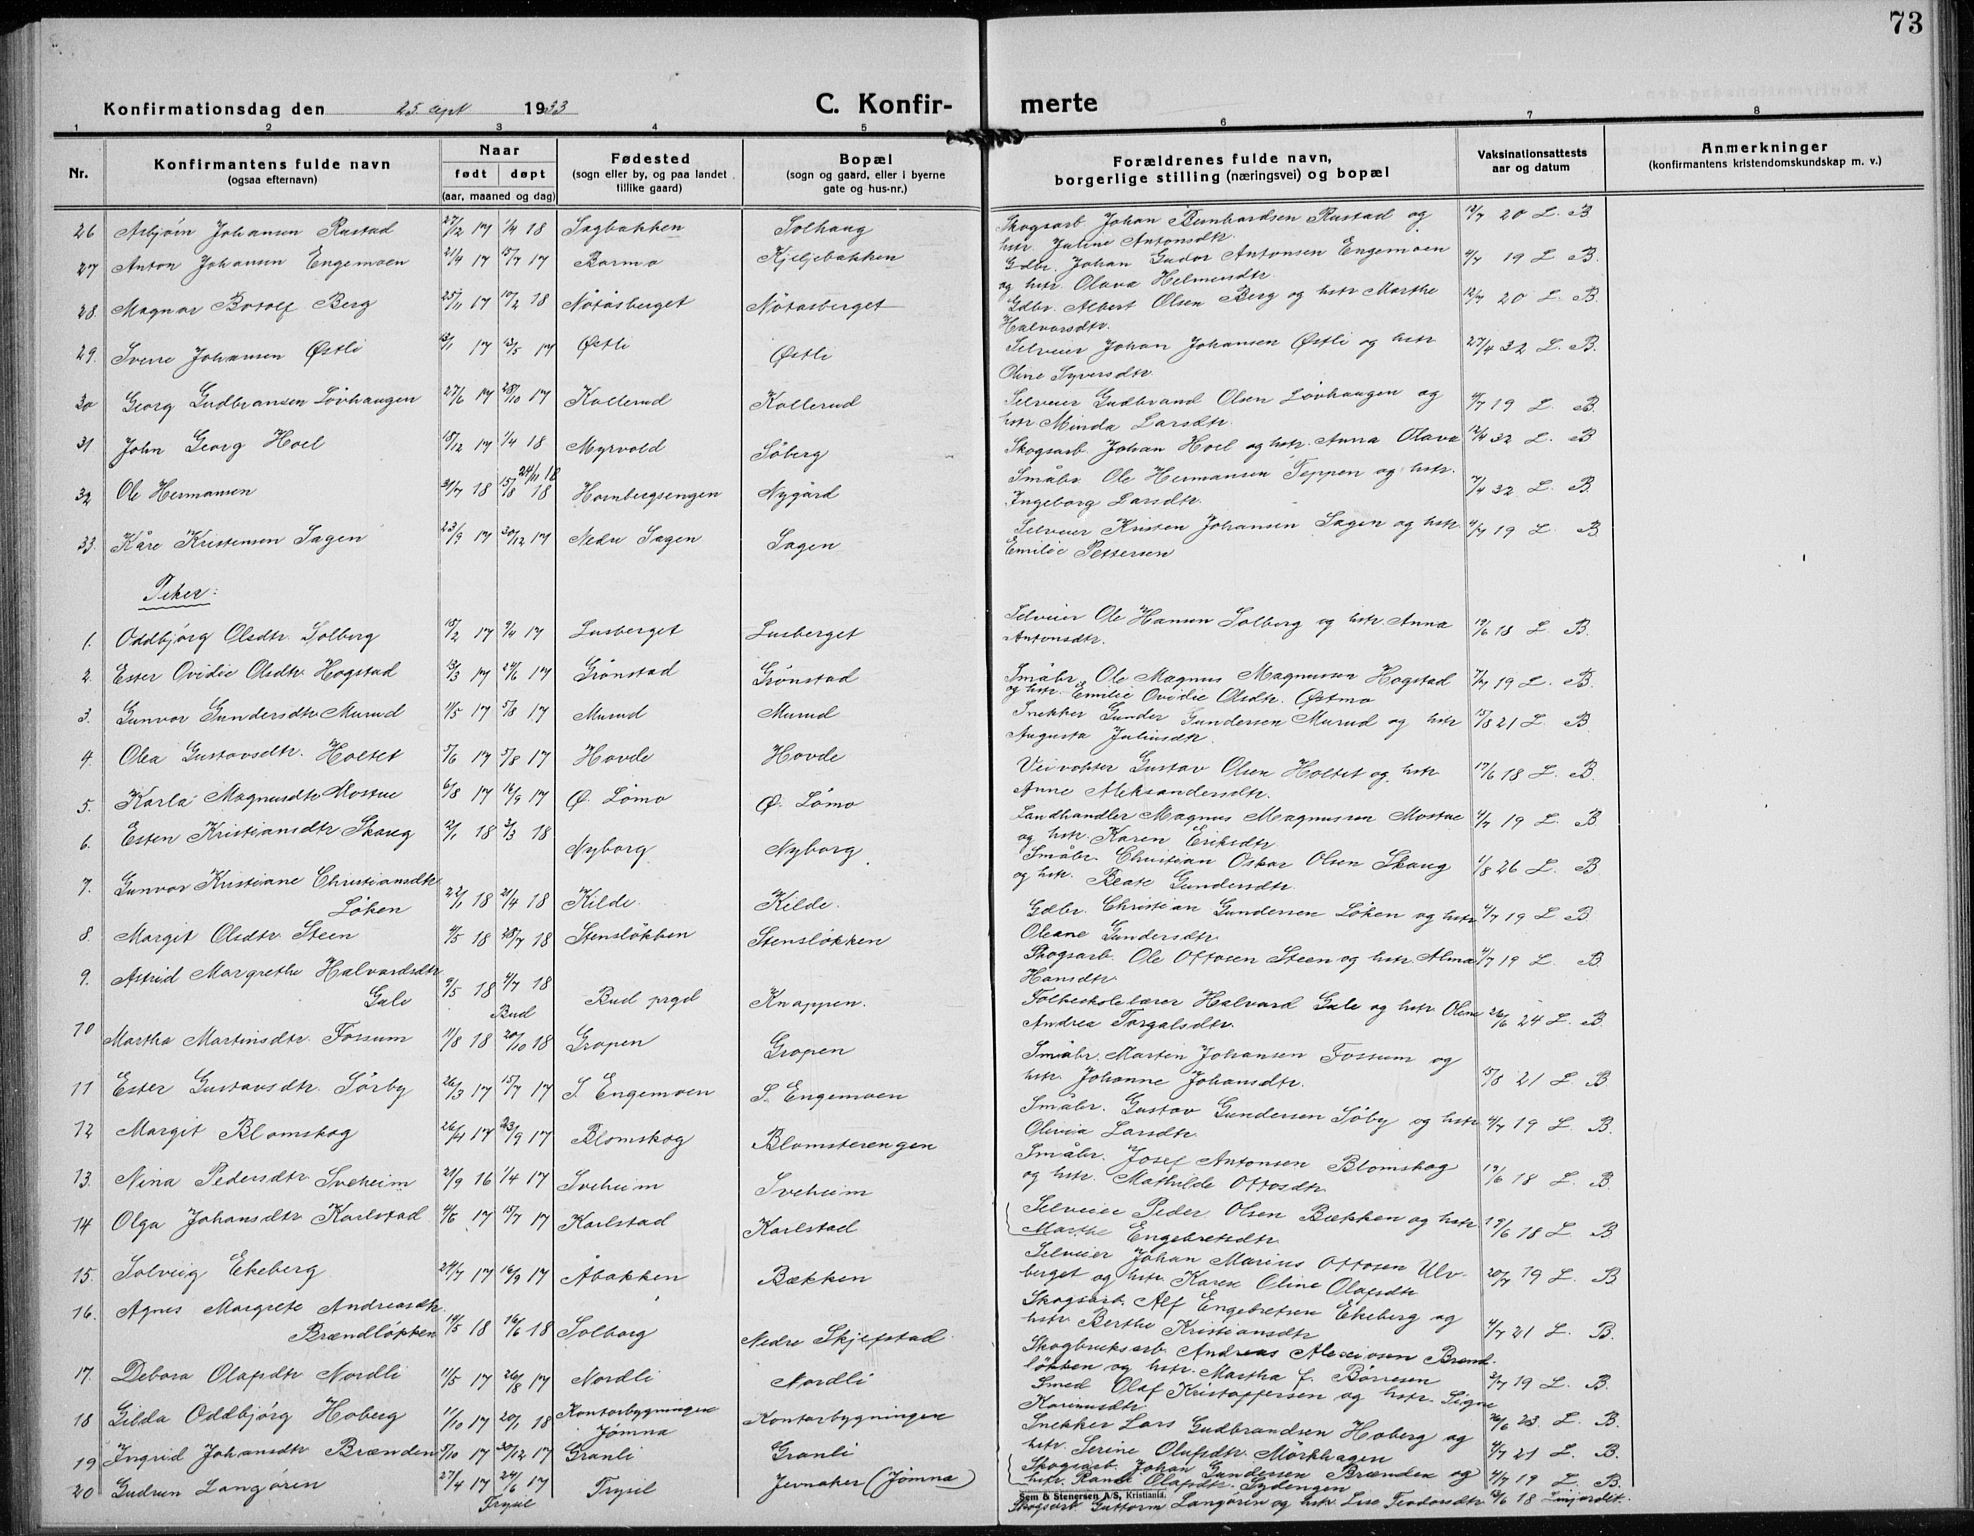 73
Konfirmationsdag den 25 sept 1933 C. Konfir- merte
1 2 3 4 5 6 7 8
Nr. Konfirmantens fulde navn (ogsaa efternavn) Naar født døpt (aar, maaned og dag) Fødested (sogn eller by, og paa landet tillike gaard) Bopæl (sogn og gaard, eller i byerne gate og hus-nr.) Forældrenes fulde navn, borgerlige stilling (næringsvei) og bopæl Vaksinationsattests aar og datum Anmerkninger (konfirmantens kristendomskundskap m. v.)
26 Asbjörn Johansen Rustad 27/12 17 1/4 18 Sagbakken Solhaug Skogsarb Johan Bernhardsen Rustad og hstr. Juline Antonsdtr. 12/7 20 L. B
27 Anton Johansen Engemoen 21/4 17 15/7 17 Barmo Kjeljebakken Gdbr. Johan Gudor Antonsen Engemoen og hstr. Olava Helmersdtr. 4/7 19 L B.
28. Magnar Botolf Berg 25/11 17 10/2 18 Nötåsberget Nötåsberget Gdbr. Albert Olsen Berg og hstr Marthe Halvorsdtr. 12/7 20 L. B.
29. Sverre Johansen Østli 13/1 17 13/5 17 Østli Østli Selveier Johan Johansen Østli og hstr Oline Syversdtr. 27/4 32 L. B.
30 Georg Gudbransen Lövhaugen 27/6 17 28/10 17 Kollerud Kollerud Selveier Gudbrand Olsen Lövhaugen og hstr Minda Larsdtr. 4/7 19 L. B.
31 John Georg Hoel 18/12 17 1/4 18 Myrvold Söberg Skogsarb. Johan Hoel og hstr. Anna Olava 12/4 32 L. B
32 Ole Hermansen 31/7 18 15/8 18 24/11 18 Hornbergsengen Nygård Småbr. Ole Hermansen Teppen og hstr. Ingeborg Larsdtr. 7/4 32 L. B.
33. Kåre Kristensen Sagen 23/9 17 30/12 17 Nedre Sagen Sagen Selveier Kristen Johansen Sagen og hstr. Emilie Pettersen 4/7 19 L B
Piker:
1. Oddbjörg Olsdtr. Solberg 15/2 17 9/4 17 Lusberget Lusberget Selveier Ole Hansen Solberg og hstr. Anna Antonsdtr. 19/6 18 L. B.
2. Ester Ovidie Olsdtr. Hogstad 13/3 17 24/6 17 Grönstad Grönstad Småbr. Ole Magnus Magnussen Hogstad og hstr. Emilie Ovidie Olsdtr. Østmo 7/7 19 L. B.
3. Gunvor Gundersdtr Murud 11/5 17 5/8 17 Murud Murud Snekker Gunder Gundersen Murud og hstr Augusta Juliusdtr. 15/8 21 L. B
4. Olea Gustavsdtr. Holtet 5/6 17 5/8 17 Hovde Hovde Veivokter Gustav Olsen Holtet og hstr Anne Aleksandersdtr. 19/6 18 L. B.
5. Karla Magnusdtr Mostue 6/8 17 16/9 17 Ø. Lömo Ø. Lömo Landhandler Magnus Magnussen Mostue og hstr. Karen Eriksdtr 4/7 19 L. B
6. Esten Kristiansdtr Skaug 12/1 18 3/3 18 Nyborg Nyborg Småbr. Christian Oskar Olsen Skaug og hstr. Beate Gundersdtr. 1/8 26 L. B
7. Gunvor Kristiane Christiansdtr Löken 22/1 18 21/4 18 Kilde. Kilde. Gdbr. Christian Gundersen Löken og hstr Oleane Gundersdtr. 4/7 19 L B
8. Margit Olsdtr. Steen 4/5 18 28/7 18 Stenslökken Stenslökken Skogsarb. Ole Ottosen Steen og hstr. Alma Hansdtr. 4/7 19 L. B.
9. Astrid Margrethe Halvardsdtr Gule 9/5 18 4/7 18 Bud Bud prgd Knappen. Folkeskolelærer Halvard Gule og hstr. Oline Andrea Torgalsdtr. 26/6 24 L. B.
10 Martha Martinsdtr. Fossum 11/8 18 20/10 18 Gropen Gropen Småbr. Martin Johansen Fossum og hstr. Johanne Johansdtr. 15/8 21 L. B
11 Ester Gustavsdtr. Sörby 26/3 17 15/7 17 S. Engemoen S. Engemoen Småbr. Gustav Gundersen Söby og hstr Olivia Larsdtr. 4/7 19 L. B.
12 Margit Blomskog 26/4 17 23/9 17 Blomskog Blomsterengen Småbr. Josef Antonsen Blomskog og hstr. Mathilde Ottosdtr. 19/6 18 L. B.
13. Nina Pedersdtr Sveheim 21/9 16 1/4 17 Sveheim Sveheim Selveier Peder Olsen Bækken og hstr Marthe Engebretsdtr. 19/6 18 L B
14 Olga Johansdtr Karlstad 4/6 17 15/7 17 Karlstad Karlstad Selveier Johan Marius Ottosen Ulvberget og hstr. Karen Oline Olafsdtr 20/7 19 L. B
15. Solveig Ekeberg 24/7 17 16/9 17 Åbakken Bækken Skogsarb. Alf Engebretsen Ekeberg og hstr Berthe Kristiansdtr 4/7 21 L. B.
16. Agnes Margrete Andreasdtr. Brændlökken 14/5 18 16/6 18 Solborg Nedre Skjefstad. Skogbruksarb. Andreas Alexiosen Brændlökken og hstr. Martha f. Börresen 2/7 19 L. B.
17. Debora Olafsdtr Nordli 11/5 17 26/8 17 Nordli Nordli Smed Olaf Kristoffersen og hstr. Signe Karenusdtr. 26/6 23 L. B.
18 Gilda Oddbjörg Hoberg 11/10 17 20/1 18 Kontorbygningen Jömna Kontorbygningen Snekker Lars Gudbrandsen Hoberg og hstr. Serine Olufsdtr. Mörkhagen 4/7 21 L. B.
19 Ingrid Johansdtr Brænden 5/10 17 30/12 17 Granli Granli Skogsarb. Johan Gundersen Brænden og hstr. Randi Olafsdtr. Sydengen 4/7 19 L. B.
20 Gudrun Langören 27/4 17 24/6 17 Trysil Trysil Jernaker (Jömna) Skogsarb. Guttorm Langören og hstr. Lise Teodorsdtr 13/6 18
Sem & Stenersen A/S, Kristiania.